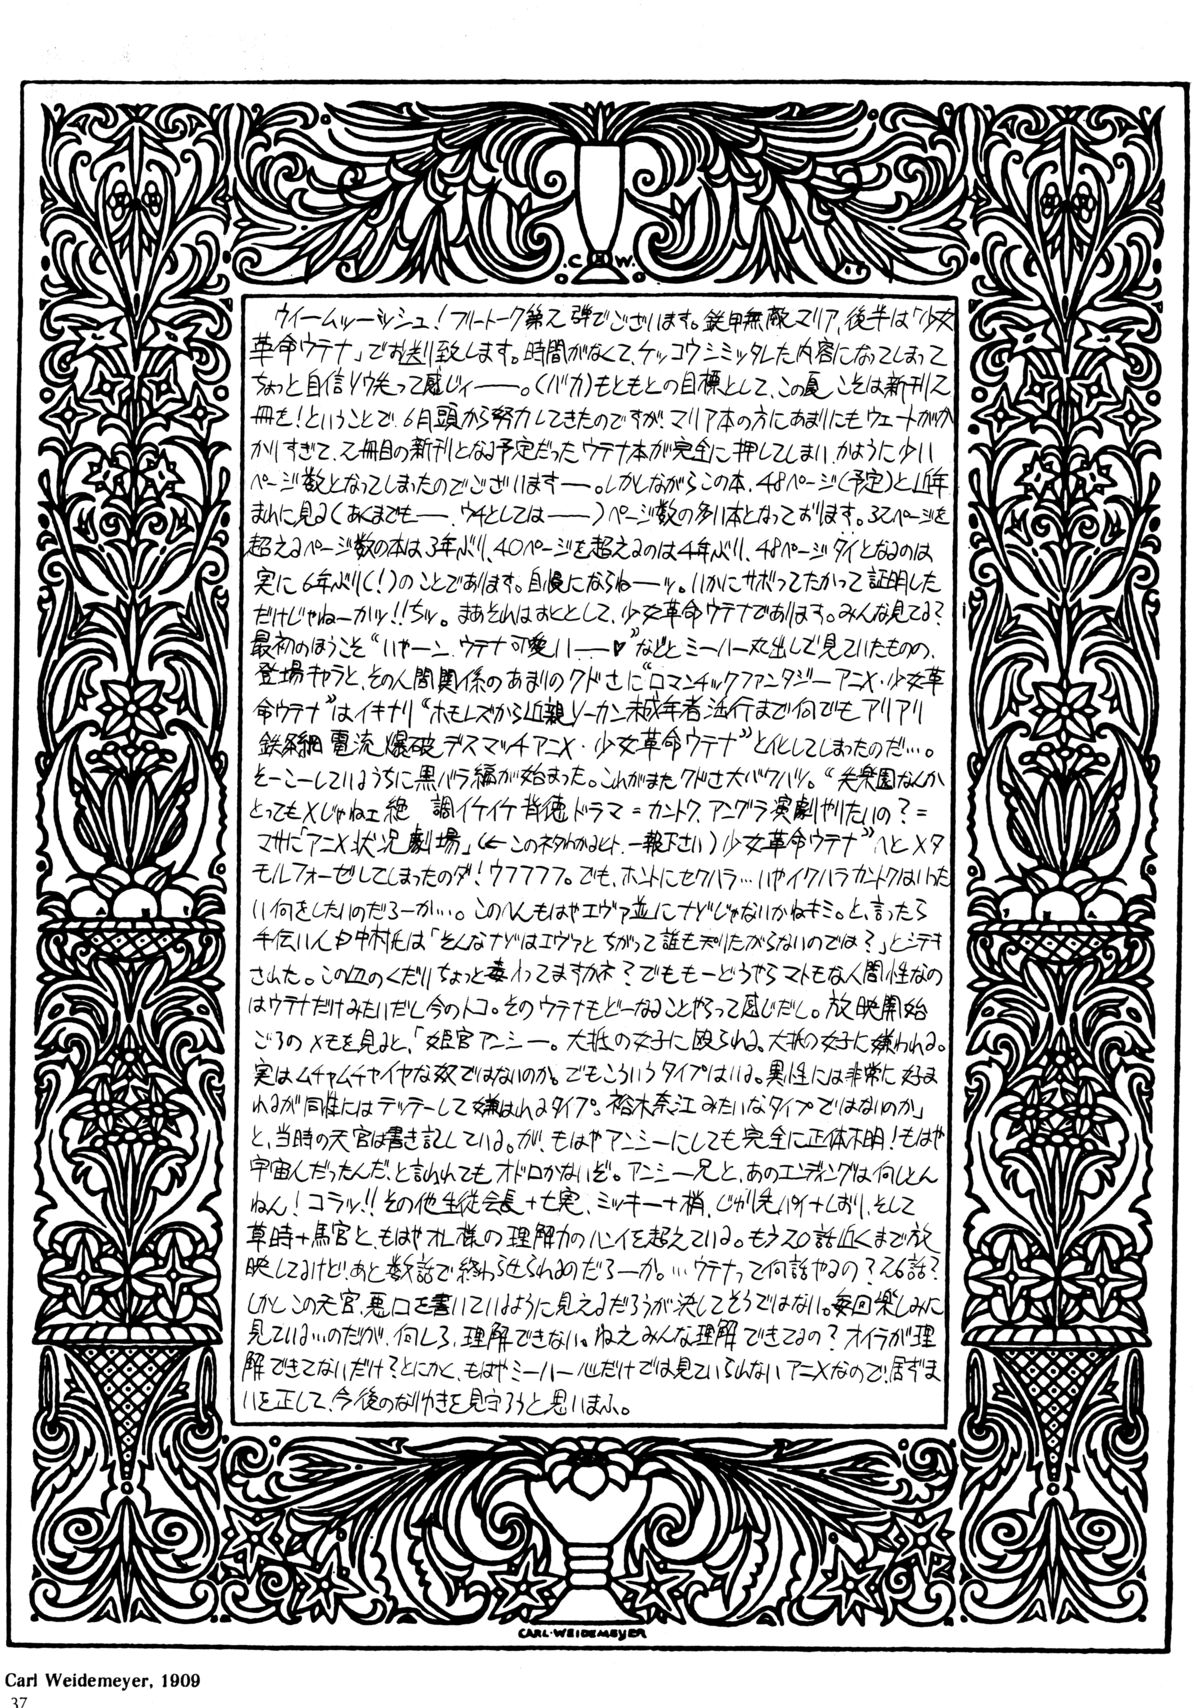 .C W.
ウイームッーッシュ!フリートーク第2弾でございます。鉄甲無敵マリア、後半は「少女
革命ウテナ」でお送り致します。時間がなくて、ケッコウシミッタレた内容になってしまって
ちょっと自信ソウ失って感じィー。(バカ)もともとの目標として、この夏こそは新刊2
冊を!ということで、6月頭から努力してきたのですが、マリア本の方にあまりにもウェートがか
かりすぎて、2冊目の新刊となる予定だったウテナ本が完全に押してしまい、かように少い
ページ数となってしまったのでございますー。しかしながらこの本、48ページ(予定)と近年
まれに見る(あくまでもー、ウチとしてはー)ページ数の多い本となっております。32ページを
超えるページ数の本は3年ぶり、40ページを超えるのは4年ぶり、48ページタイとなるのは
実に6年ぶり(!)のことであります。自慢にならねーッ。いかにサボってたかって証明した
だけじゃねーかッ!!ちッ。まあそれはおくとして、少女革命ウテナであります。みんな見てる?
最初のほうこそ“いやーン、ウテナ可愛いー♥”などとミーハー丸出しで見ていたものの、
登場キャラと、その人間関係のあまりのクドさに“ロマンチックファンタジーアニメ・少女革
命ウテナ”はイキナリ“ホモレズから近親ソーカン未成年者淫行まで何でもアリアリ
鉄条網電流爆破デスマッチアニメ・少女革命ウテナ”と化してしまったのだ…。
そーこーしているうちに黒バラ編が始まった。これがまたクドさ大バクハツ。“失楽園なんか
とってもメじゃねェ絶 調イケイケ背徳ドラマ=カントクアングラ演劇やりたいの?=
マサに「アニメ状況劇場」(←このネタわかるヒト、一報下さい)少女革命ウテナ”へとメタ
モルフォーゼしてしまったのダ!ウフフフフ。でも、ホントにセクハラ…いやイクハラカントクはいった
い何をしたいのだろーか…。このへんもはやエヴァ並にナゾじゃないかねキミ。と、言ったら
手伝い人中村氏は「そんなナゾはエヴァとちがって誰も知りたがらないのでは?」とシテキ
された。この辺のくだりちょっと毒入ってますかネ?でももーどうやらマトモな人間性なの
はウテナだけみたいだし今のトコ。そのウテナもどーなることやらって感じだし。放映開始
ごろのメモを見ると、「姫宮アンシー。大抵の女子に殴られる。大抵の女子に嫌われる。
実はムチャムチャイヤな奴ではないのか。でもこういうタイプはいる。異性には非常に好ま
れるが同性にはテッテーして嫌われるタイプ。裕木奈江みたいなタイプではないのか」
と、当時の天宮は書き記している。が、もはやアンシーにしても完全に正体不明!もはや
宇宙人だったんだ、と言われてもオドロかないぞ。アンシー兄と、あのエンディングは何しとん
ねん!コラッ!!その他生徒会長+七実、ミッキー+梢、じゅり先パイ+しおり、そして
草時+馬宮と、もはやオレ様の理解力のハンイを超えている。もう20話近くまで放
映してるけど、あと数話で終わらせられるのだろーか。…ウテナって何話やるの?26話?
しかしこの天宮、悪口を書いているように見えるだろうが決してそうではない。毎回楽しみに
見ている…のだが、何しろ、理解できない。ねえみんな理解できてるの?オイラが理
解できてないだけ?とにかく、もはやミーハー心だけでは見ていられないアニメなので、居ずま
いを正して、今後のなりゆきを見守ろうと思いまふ。
CARL·WEIDEMEYER
Carl Weidemeyer, 1909
37